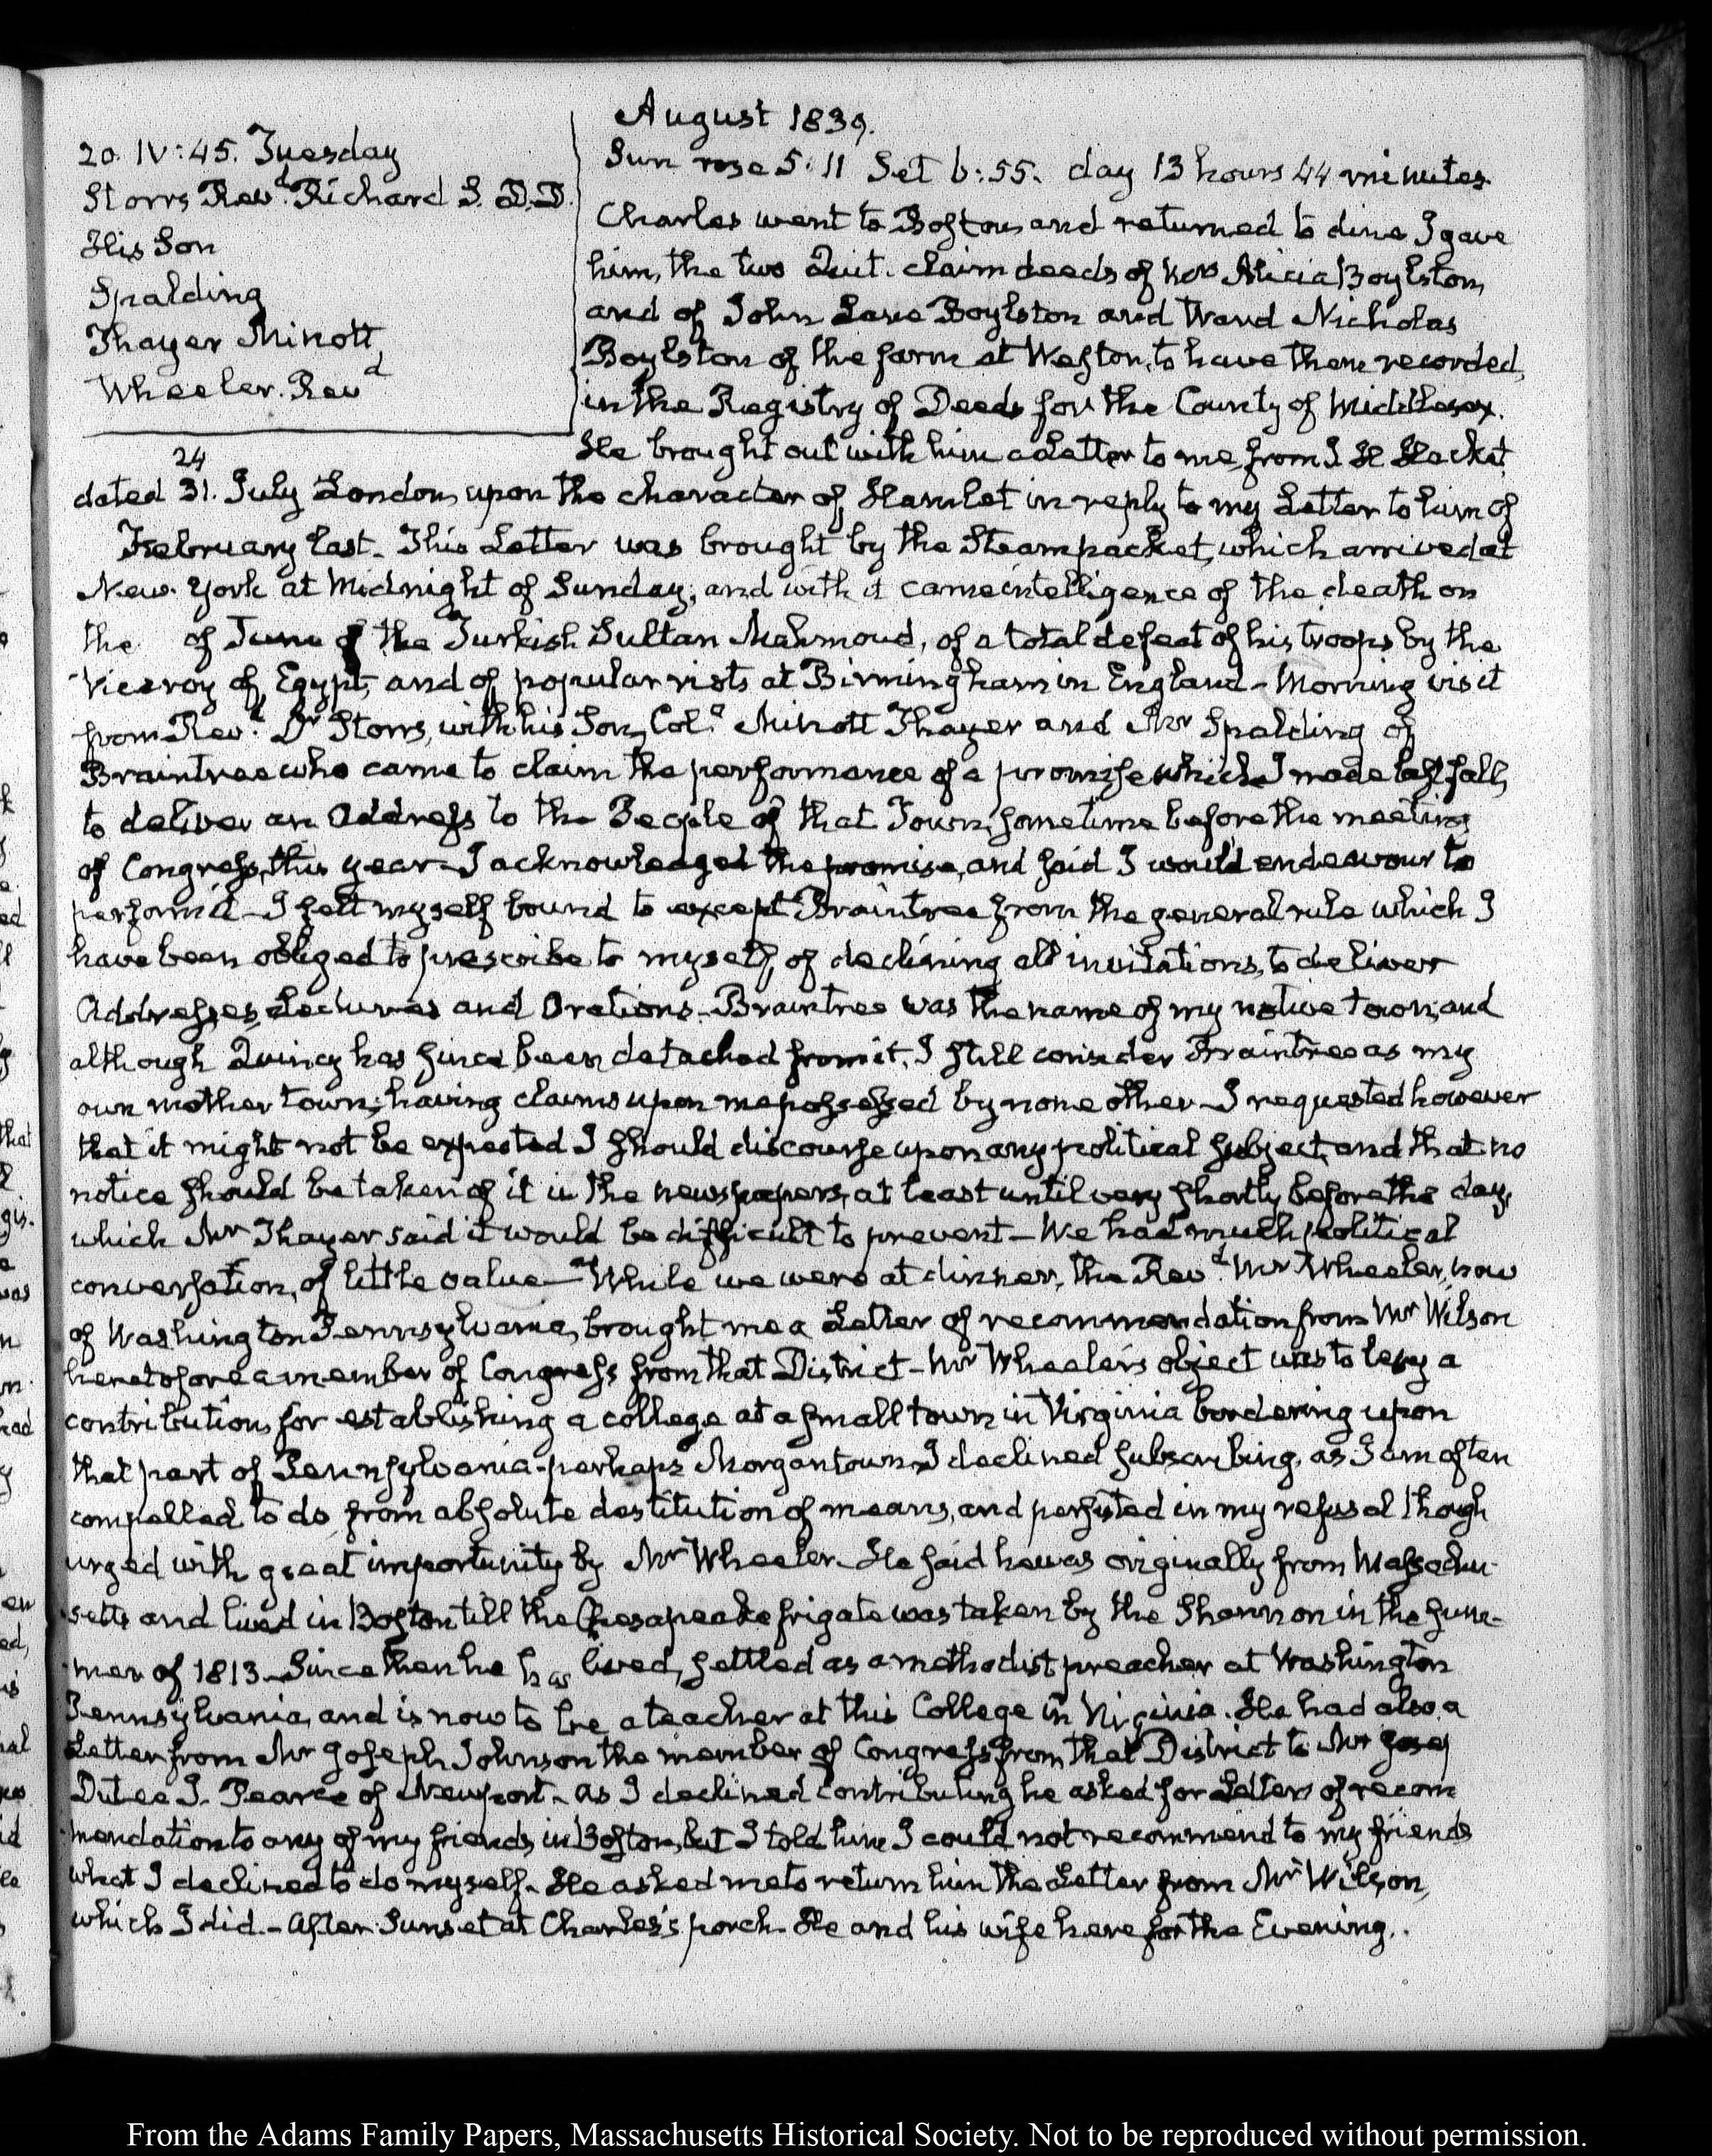 August 1839.
20. IV:45. Tuesday
Storrs Revd. Richard S. D.D.
His Son
Spalding
Thayer Minott
Wheeler. Revd
Sun rose 5:11 Set 6:55. day 13 hours 44 minutes
Charles went to Boston and returned to dine I gave
him, the two Quit-claim deeds of Mrs Alicia Boylston,
and of John Lane Boylston and Ward Nicholas
Boylston of the farm at Weston, to have them recorded,
in the Registry of Deeds for the County of Middlesex.
He brought out with him a Letter to me from J H Hackett
24
dated 31. July London, upon the character of Hamlet in reply to my Letter to him of
February last. This Letter was brought by the Steam packet, which arrived at
New-York at Midnight of Sunday; and with it came intelligence of the death on
the of June of the Turkish Sultan Mahmoud, of a total defeat of his troops by the
Viceroy of Egypt, and of popular riots at Birmingham in England – Morning visit
from Revd. Dr Storrs, with his Son, Coll. Minott Thayer and Mr Spalding of
Braintree who came to claim the performance of a promise which I made last fall,
to deliver an Address to the People of that Town, sometime before the meeting
of Congress, this year – I acknowledged the promise, and said I would endeavour to
perform it – I felt myself bound to except Braintree from the general rule which I
have been obliged to prescribe to myself, of declining all invitations, to deliver
Addresses, Lectures and Orations – Braintree was the name of my native town, and
although Quincy has since been detached from it, I still consider Braintree as my
own mother town; having claims upon me possessed by none other – I requested however
that it might not be expected I should discourse upon any political subject, and that no
notice should be taken of it in the newspapers, at least until very shortly before the day,
which Mr Thayer said it would be difficult to prevent – We had much political
conversation, of little value – While we were at dinner, the Revd. Mr Wheeler, now
of Washington Pennsylvania, brought me a Letter of recommendation from Mr Wilson
heretofore a member of Congress from that District – Mr Wheeler's object was to levy a
contribution, for establishing a college at a small town in Virginia bordering upon
that part of Pennsylvania – perhaps Morgantown. I declined subscribing, as I am often
compelled to do from absolute destitution of means, and persisted in my refusal though
urged with great importunity by Mr Wheeler – He said he was originally from Massachu-
setts and lived in Boston till the Chesapeake frigate was taken by the Shannon in the sum-
mer of 1813 – Since then he has lived, settled as a methodist preacher at Washington
Pennsylvania, and is now to be a teacher at this College in Virginia. He had also a
Letter from Mr Joseph Johnson the member of Congress from that District to Mr
Dutee J. Pearce of Newport – As I declined contributing he asked for Letters of recom
mendation to any of my friends in Boston, but I told him I could not recommend to my friends
what I declined to do myself. He asked me to return him the Letter from Mr Wilson,
which I did. – After Sunset at Charles's porch – He and his wife here for the Evening.
From the Adams Family Papers, Massachusetts Historical Society. Not to be reproduced without permission.